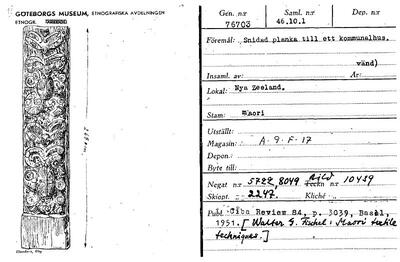 GÖTEBORGS MUSEUM, ETNOGRAFISKA AVDELNINGEN
ETNOGR.
Gen. n:r
76703
Saml. n:r
46.10.1
Dep. n:r
Föremål: Snidad planka till ett kommunalhus.
vänd)
Insaml. av: År:
Lokal: Nya Zeeland.
Stam: maori
Utställt:
Magasin: A·9·F·17
Depon.:
Byte till:
Negat n:r 5722, 8049 Bild n:r 10419
Skiopt. 2247. Kliché
Publ Ciba Review 84, p. 3039, Basel,
1951. [Walter G. Fischel: Maori textile
techniques.]